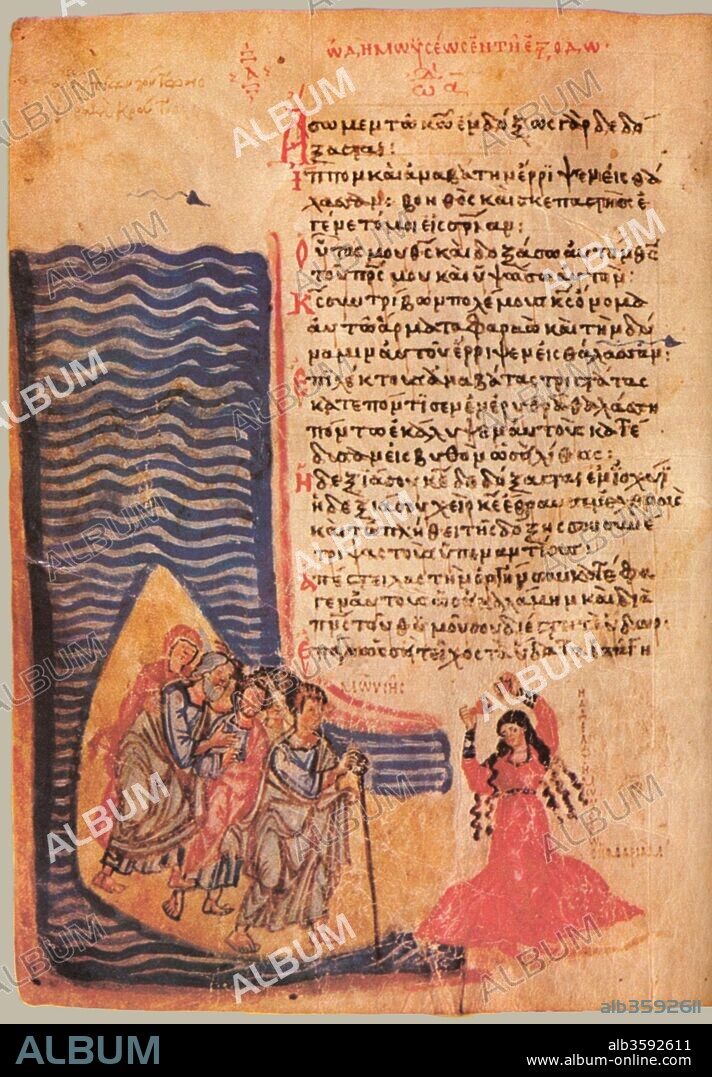 ὨΔΗ ΜΩΫΣΕΩΣ ἘΝ ΤΗ ἘΞΟΔΩ
ᾨΔ Α
Ἄσωμεν τῶ κω ἐνδόξως γὰρ δεδό
ξασται:
ἵππον καὶ ἀναβάτην ἔρριψεν εἰς θά
λασσαν: βοηθὸς καὶ σκεπαστὴς ἐ
γένετό μοι εἰς σρίαν:
Οὗτός μου θς καὶ δοξάσω αὐτὸν θς
τοῦ πρς μου καὶ ὑψώσω αὐτόν:
Κς συντρίβων πολέμους κς ὄνομα
αὐτῶ ἅρματα Φαραὼ καὶ τὴν δύ
ναμιν αὐτοῦ ἔρριψεν εἰς θάλασσαν:
Ἐπιλέκτους ἀναβάτας τριστάτας
κατεπόντισεν ἐν ἐρυθρᾶ θαλάσση
πόντω ἐκάλυψεν αὐτοὺς κατέ
δυσαν εἰς βυθὸν ὡσεὶ λίθος:
Ἡ δεξιά σου κε δεδόξασται ἐν ἰσχύϊ
ἡ δεξιά σου χεὶρ κε ἔθραυσεν
καὶ τῶ πλήθει τῆς δόξης σου συνέ
τριψας τοὺς ὑπεναντίους:
Ἀπέστειλας τὴν ὀργήν σου κατέφα
γεν αὐτοὺς ὡς καλάμην καὶ διὰ
πνς τοῦ θυμοῦ σου διέστη τὸ ὕδωρ:
ὡσεὶ τεῖχος τὰ ὕδατα
ΜΩΥΣΗΣ
ALBUM
alb3592611
ALBUM
alb3592611
www.album-online.com